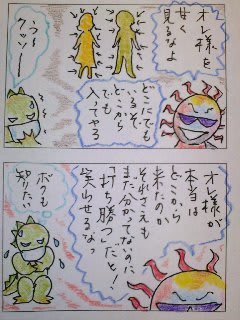 オレ様を
甘く
見るなよ
どこにでも
いるぞ
どこから
でも
入ってやる
う〜
クッソー
オレ様が
本当は
どこから
来たのか
それさえも
まだ分かてないのに
「打ち勝つ」だと!
笑らせるなっ
ボクも
知りたい